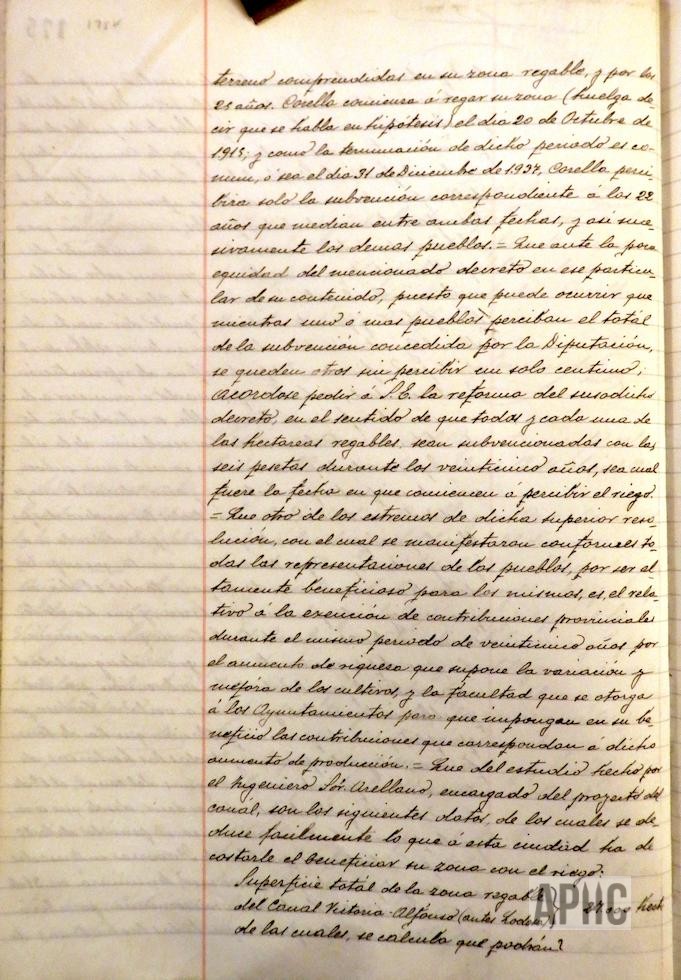 terreno comprendidas en su zona regable, y por los
25 años. Corella comienza á regar su zona (huelga de-
cir que se habla en hipótesis) el dia 20 de Octubre de
1915; y como la terminación de dicho periodo es co-
mun, ó sea el dia 31 de Diciembre de 1937, Corella perci-
birá solo la subvención correspondiente á los 22
años que median entre ambas fechas, y asi suce-
sivamente los demas pueblos. = Que ante la poca
equidad del mencionado decreto en ese particu-
lar de su contenido, puesto que puede ocurrir que
mientras uno ó mas pueblos perciban el total
de la subvención concedida por la Diputación,
se queden otros sin percibir un solo centimo;
acordose pedir á S.E. la reforma del susodicho
decreto, en el sentido de que todas y cada una de
las hectareas regables, sean subvencionadas con las
seis pesetas durante los veinticinco años, sea cual
fuere la fecha en que comiencen á percibir el riego.
= Que otro de los estremos de dicha superior reso-
lución, con el cual se manifestaron conformes to-
das las representaciones de los pueblos, por ser al-
tamente beneficioso para los mismos, es, el rela-
tivo á la exención de contribuciones provinciales
durante el mismo periodo de veinticinco años por
el aumento de riqueza que supone la variación y
mejora de los cultivos, y la facultad que se otorga
á los Ayuntamientos para que impongan en su be-
neficio las contribuciones que correspondan á dicho
aumento de producción. = Que del estudio hecho por
el Ingeniero Sór. Arellano, encargado del proyecto del
canal, son los siguientes datos, de los cuales se de-
duce facilmente lo que á esta ciudad ha de
costarle el beneficiar su zona con el riego:
Superficie total de la zona regable
del Canal Victoria-Alfonso (antes Lodosa) Hect
de las cuales, se calcula que podrán
APHC